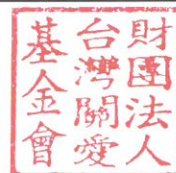 財團法人
台灣關愛
基金會